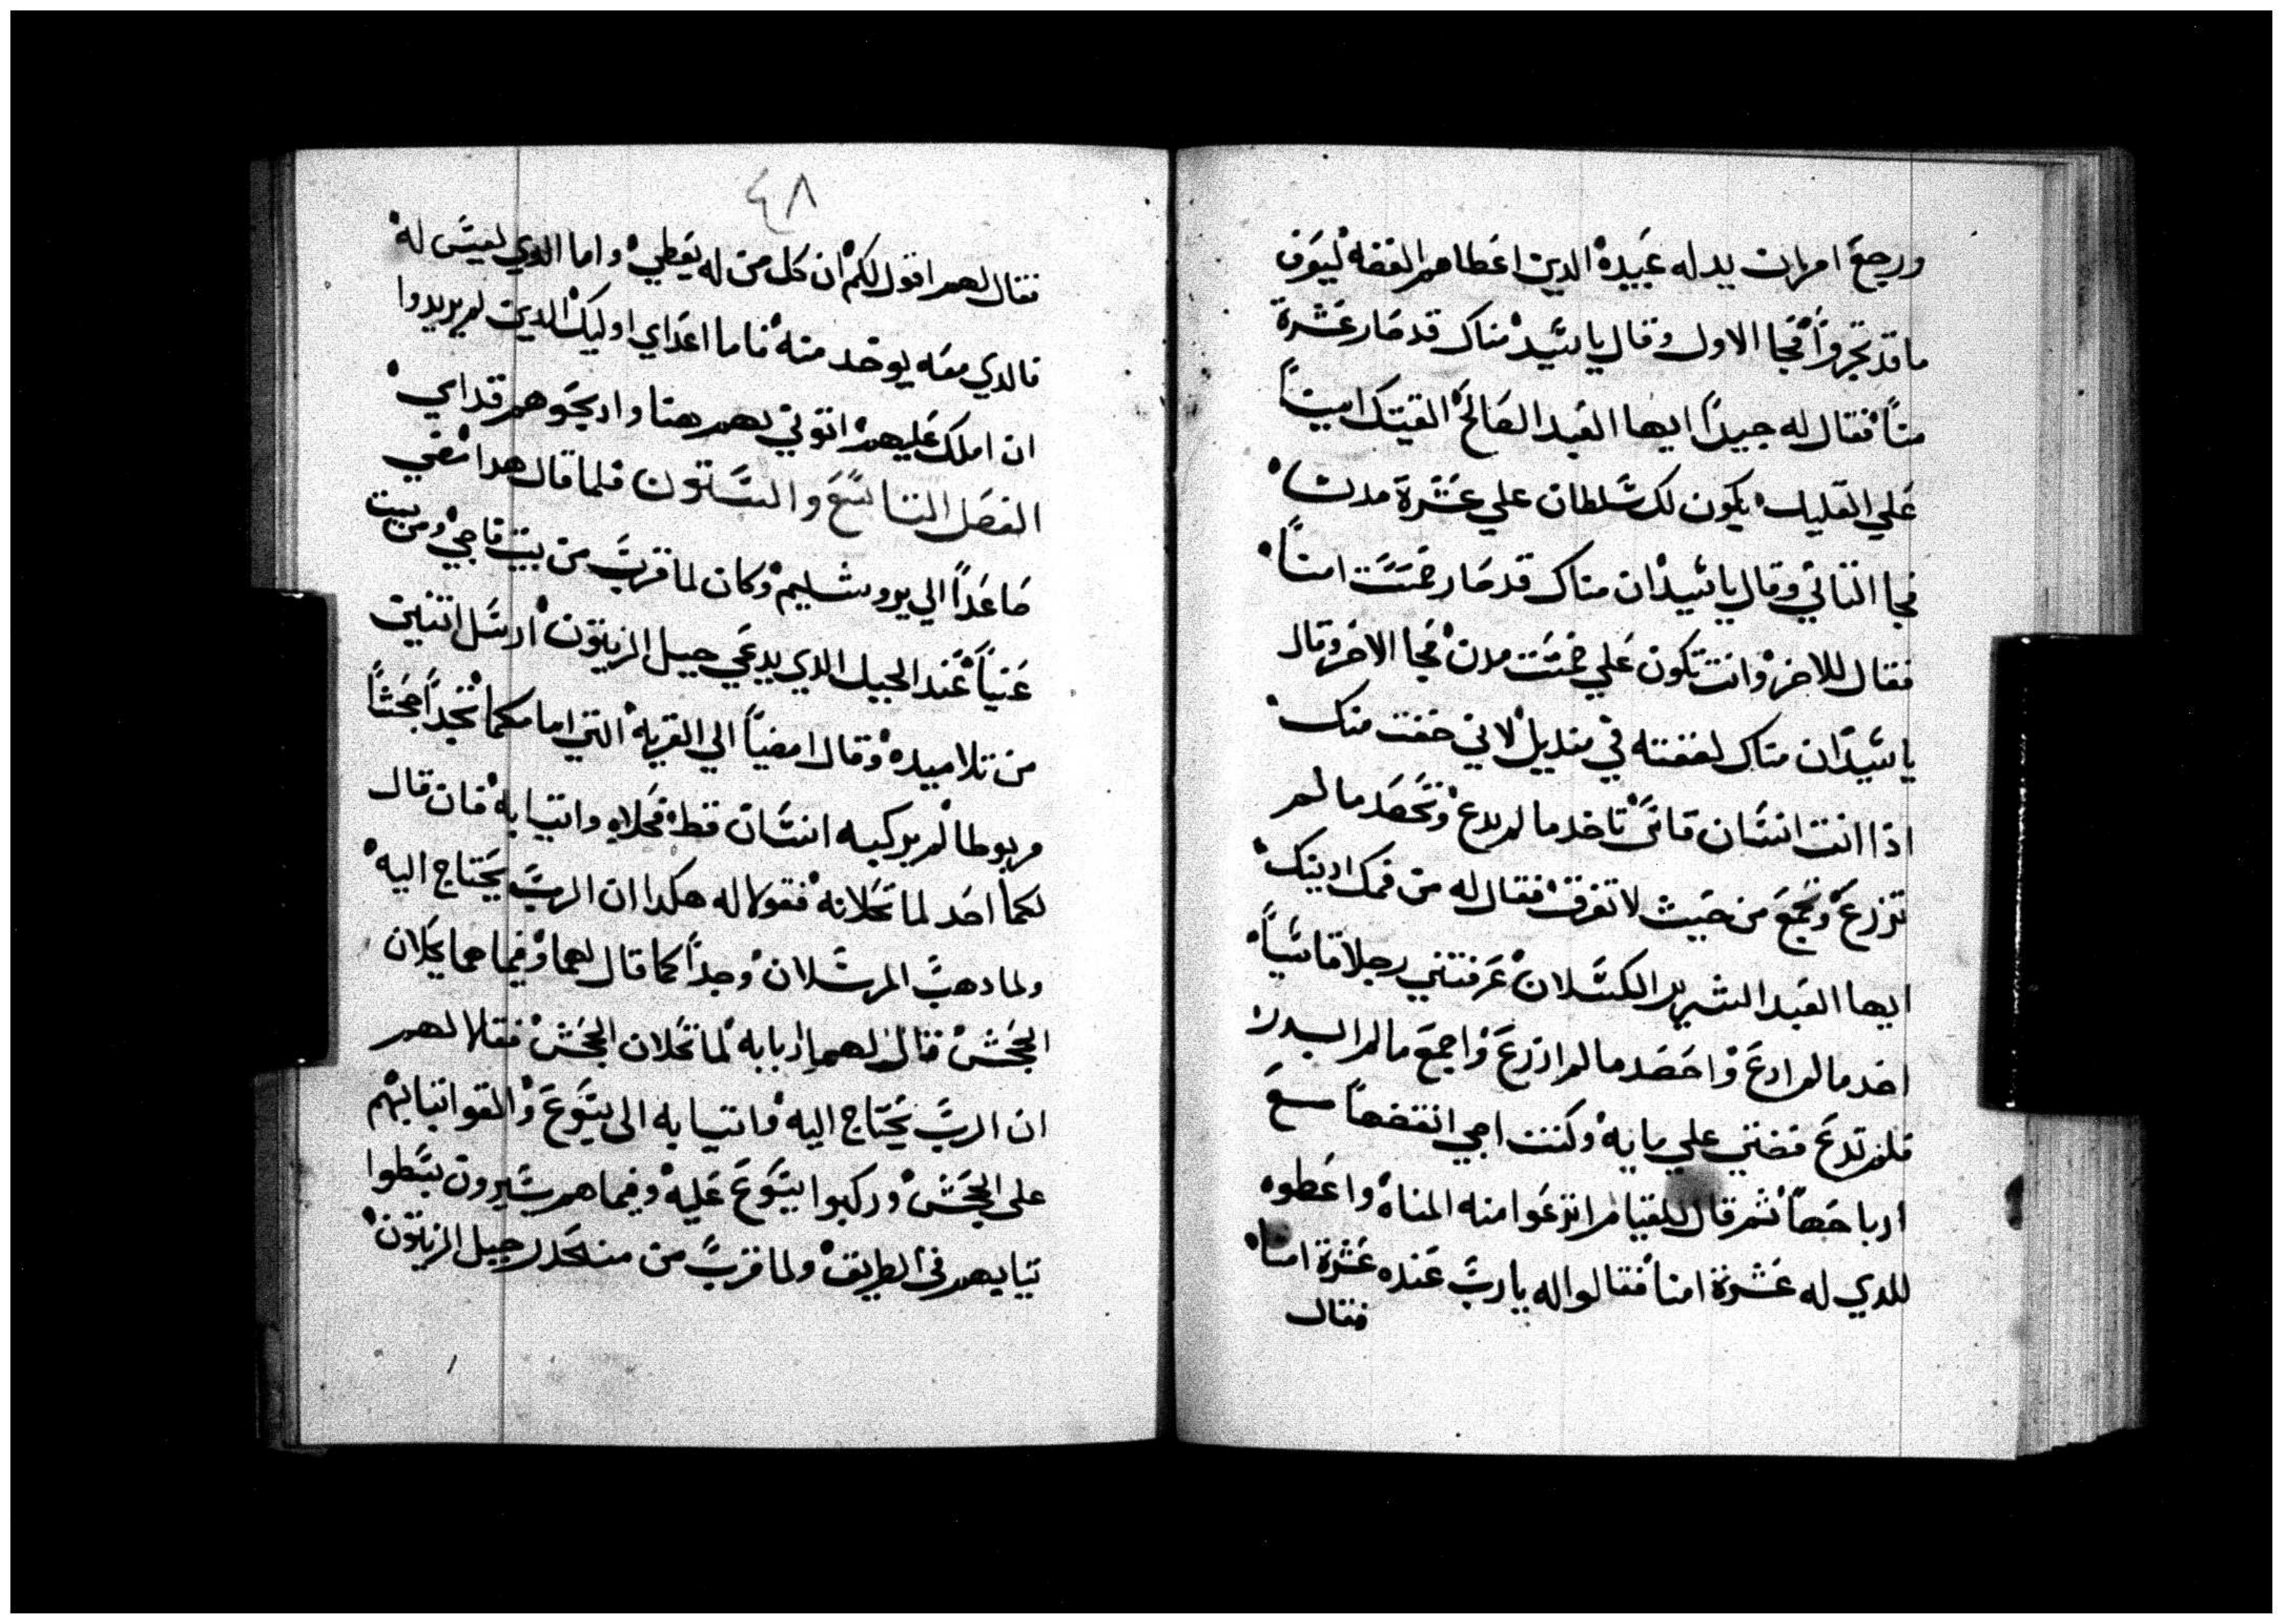 ورجع امر ان يدله عبيده الدين اعطاهم الفضه ليعرف
ما قد تجروا فجا الاول وقال ياسيد مناك قد صار عشرة
منا فقال له جيدا ايها العبد الصالح القيتك امينا
علي القليل يكون لك سلطان علي عشرة مدن
فجا التاني وقال ياسيد ان مناك قد صار خمست امنا
فقال للاخر وانت تكون علي خمست مدن فجا الاخر وقال
ياسيد ان مناك لففته في منديل لاني خفت منك
اذا انت انسان قاس تاخد ما لم يدع وتحصد ما لم
تزرع وتجمع من حيث لا تفرق فقال له من فمك ادينك
ايها العبد الشرير الكسلان عرفتني رجلا قاسيا
اخد ما لم ادع واحصد ما لم ازرع واجمع ما لم ابدر
فلم تدع فضتي علي مايه وكنت اجي اتقضها مع
ارباحها ثم قال للقيام انزعوا منه المناه واعطوه
للدي له عشرة امنا فقالوا له يارب عنده عشرة امنا
فقال
٤٨
فقال لهم اقول لكم ان كل من له يعطي واما الدي ليس له
فالدي معه يوخد منه فاما اعداي اوليك الدين لم يريدوا
ان املك عليهم اتوني بهم هنا وادبحوهم قداي
الفصل التاسع والستون فلما قال هدا مضي
صاعدا الي يروشليم وكان لما قرب من بيت فاجي ومن بيت
عنيا عند الجبل الدي يدعي جبل الزيتون ارسل اتنين
من تلاميده وقال امضيا الي القريه التي امامكما تجدا جحشا
مربوطا لم يركبه انسان قط فحلاه واتيا به فان قال
لكما احد لما تحلانه فقولا له هكدا ان الرب يحتاج اليه
ولما دهب المرسلان وجدا كما قال لهما وفيما هما يحلان
الجحش قال لهما اربابه لما تحلان الجحش فقالا لهم
ان الرب يحتاج اليه واتيا به الى يسوع والقوا تيابهم
على الجحش وركبوا يسوع عليه وفيما هم يسيرون بسطوا
تيابهم في الطريق ولما قرب من منحدر جبل الزيتون